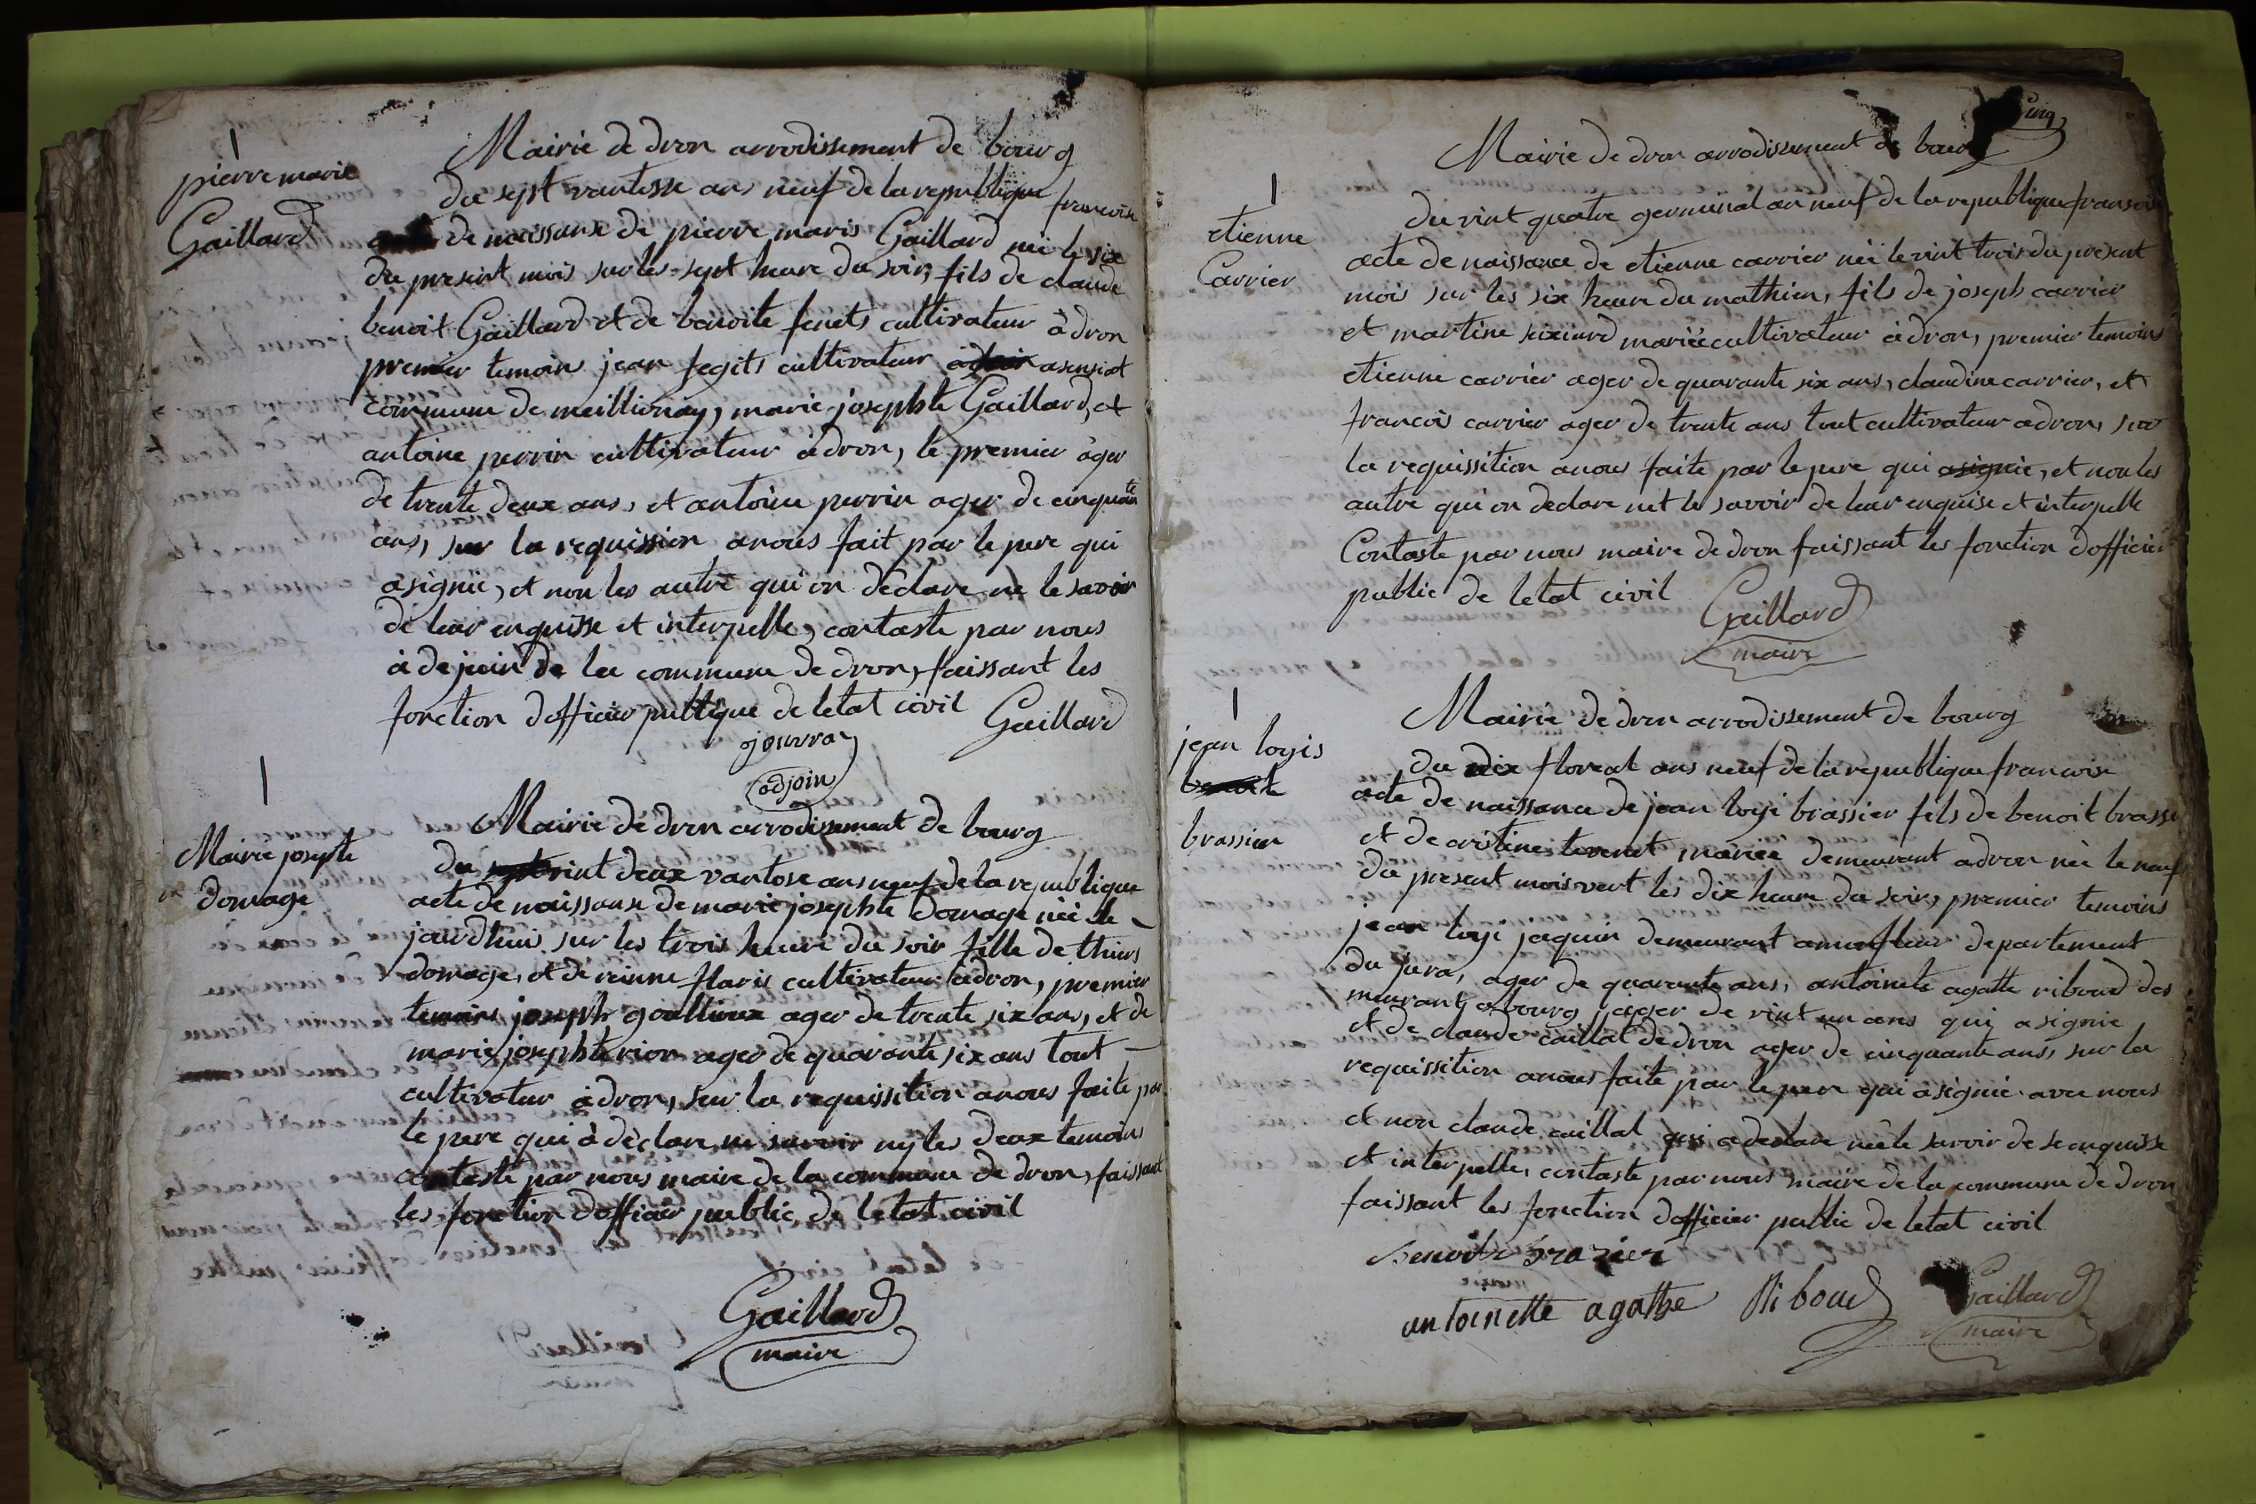 pierre marie
Gaillard
Mairie de dron arrodissement de bourg
du sept vantosse ans neuf de la republique francoise
de naissanse de pierre maris Gaillard née le six
du present mois sur les sept heure du soir, fils de claude
benoit Gaillard et de benoite fenets cultivateur à dron
premier temoin jean segits cultivateur asensiat
commune de meillionay, marie josephte Gaillard, et
antoine perrin cultivateur à dron, le premier àger
de trente deux ans, et antoine perrin ager de cinquante
ans, sur la requission anous fait par le pere qui
asignie, et non les autre qui on déclare ne le savoir
de leur enquisse et interpelle, contaste par nous
à dejuin de la commune de dron, faissant les
fonction dofficier publique de letat civil
Gaillard
gouvray
adjoin
Mairie josephte
domage
Mairie de dron arrodissement de bourg
du vint deux vantose ans neuf de la republique
acte de naissanse de marie josephte Domage née le
jourdhuis sur les trois heure du soir fille de thiens
domage, et de reinne floris cultivateur à dron, premier
temoins joseph goullioux ager de trente six ans, et de
marie josephte rion ager de quarante six ans tout
cultivateur à dron, sur la requissition anous faite par
le pere qui à déclare ne savoir ny les deux temoins
contaste par nous maire de la commune de dron, faissant
les fonction dofficier public de letat civil
Gaillard
maire
cinq
etienne
Carrier
Mairie de dron arrodissement de bourg
du vint quatre germinal an neuf de la republique fransoise
acte de naissance de etienne carrier née le vint trois du present
mois sur les six heure du mathien, fils de joseph carrier
et martine mariée cultivateur à dron, premier temoins
etienne carrier ager de quarante six ans, claudine carrier, et
francois carrier ager de trente ans tout cultivateur adron, sur
la requissition anous faite par le pere qui asignie, et non les
autre qui on declare net le savoir de leur enquise et interpelle
Contaste par nous maire de dron faissant les fonction dofficier
public de letat civil
Gaillard
maire
jean loyis
brassier
Mairie de dron arrodissement de bourg
du dix floreal ans neuf de la republique francoise
acte de naissance de jean loyi brassier fils de benoit brassi
et de cristine tevenet mariée demeurant adron née le neuf
du present mois vert les dix heure du soir, premier temoins
jean loyi jaquin demeurant departement
du jura, ager de quarante ans, antoinete agatte riboud des
meurant abourg, àger de vint un ans qui asignie
et de claude caillat de dron ager de cinquante ans, sur la
requissition anous faite par le pere qui asignie avec nous
et non claude caillat qui adeclare née le savoir de se enquisse
et interpelle, contaste par nous maire de la commune de dron
faissant les fonction dofficier public de letat civil
Benoit Brazier
antoinette agathe Riboud
Gaillard
maire